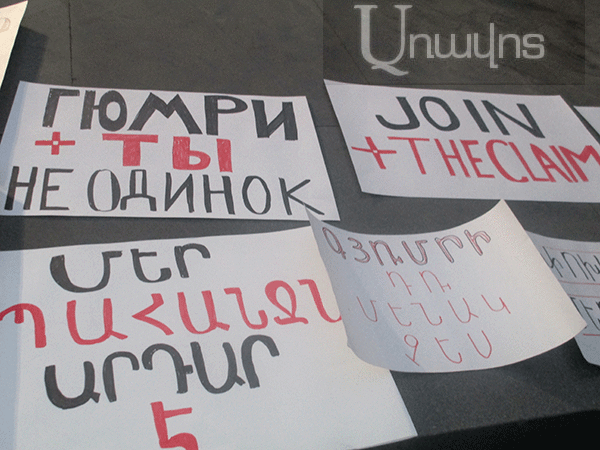 Առավոտ
ГЮМРИ
+ ТЫ
НЕ ОДИНОК
JOIN
+THECLAIM
ՄԵՐ
ՊԱՀԱՆՋՆ
ԱՐԴԱՐ
Է
ԳՅՈՒՄՐԻ
ԴՈՒ
ՄԵՆԱԿ
ՉԵՍ